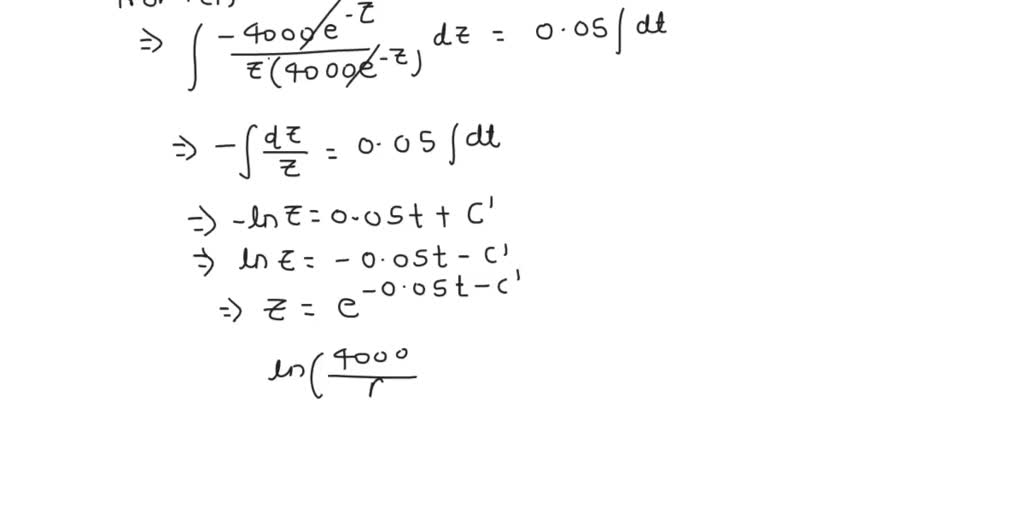 ⇒ ∫ -4000e^-z / z(4000e^-z) dz = 0.05 ∫ dt
⇒ -∫ dz/z = 0.05 ∫ dt
⇒ -ln z = 0.05t + C'
⇒ ln z = -0.05t - C'
⇒ z = e^-0.05t-C'
ln(4000/r